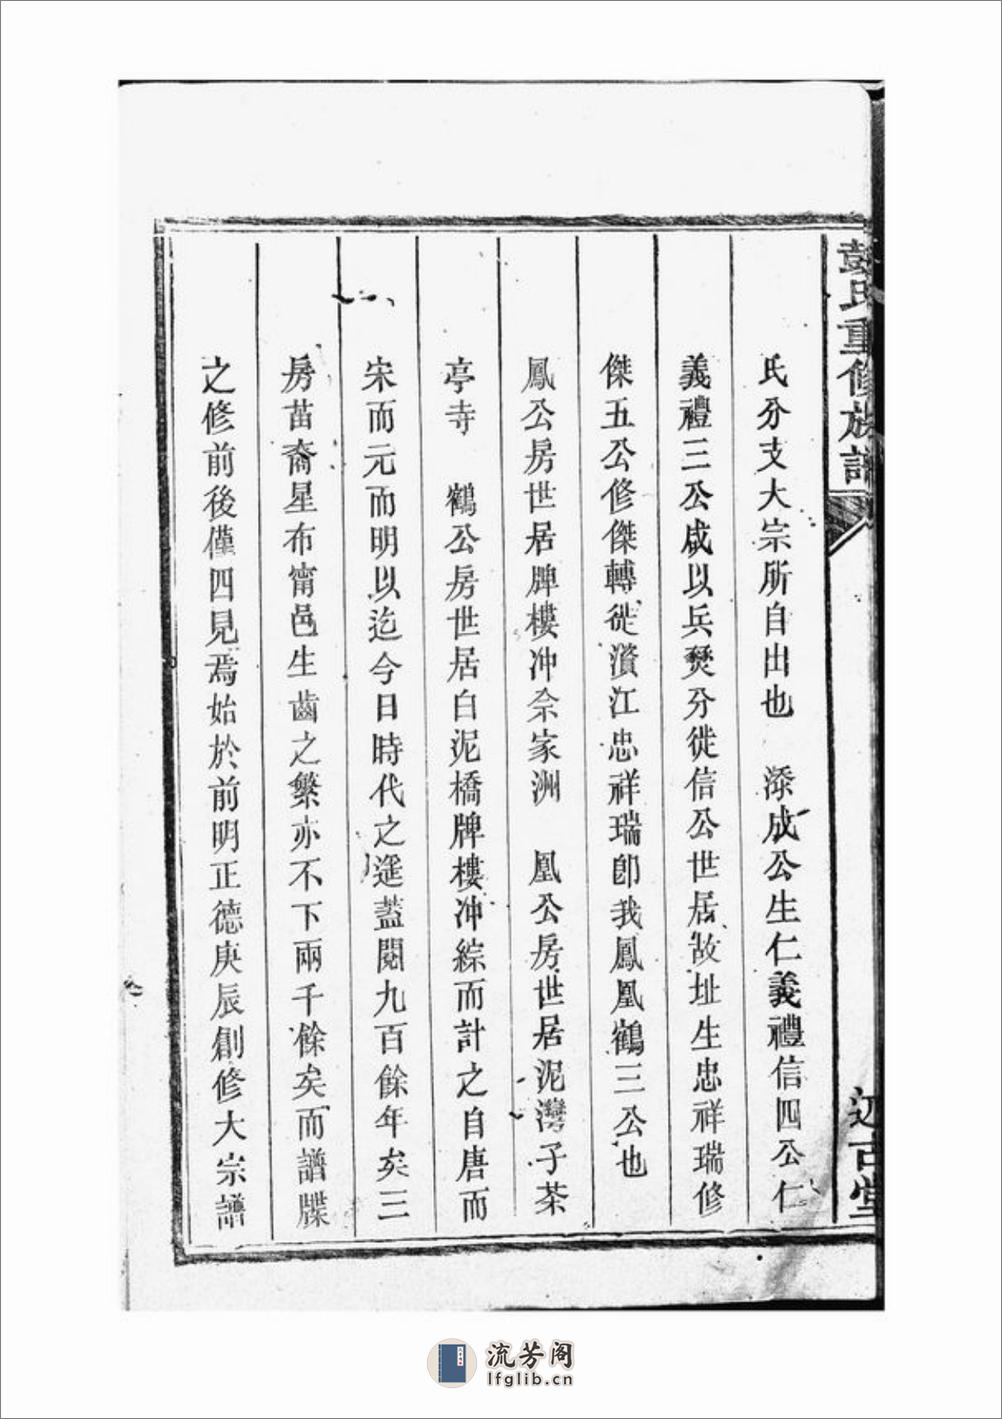 彭氏重修族譜
述古堂
氏分支大宗所自出也　添成公生仁義禮信四公仁
義禮三公咸以兵燹分徙信公世居故址生忠祥瑞修
傑五公修傑轉徙濱江忠祥瑞卽我鳳凰鶴三公也
鳳公房世居牌樓冲佘家洲　凰公房世居泥灣子茶
亭寺　鶴公房世居白泥橋牌樓冲綜而計之自唐而
宋而元而明以迄今日時代之遥蓋閱九百餘年矣三
房苗裔星布甯邑生齒之繁亦不下兩千餘矣而譜牒
之修前後僅四見焉始於前明正德庚辰創修大宗譜
流芳阁
lfglib.cn